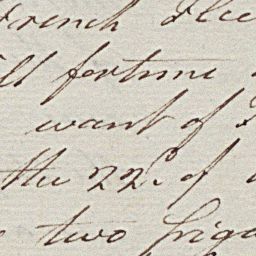 French Flee
ill fortune
want of
the 22d. of
two friga